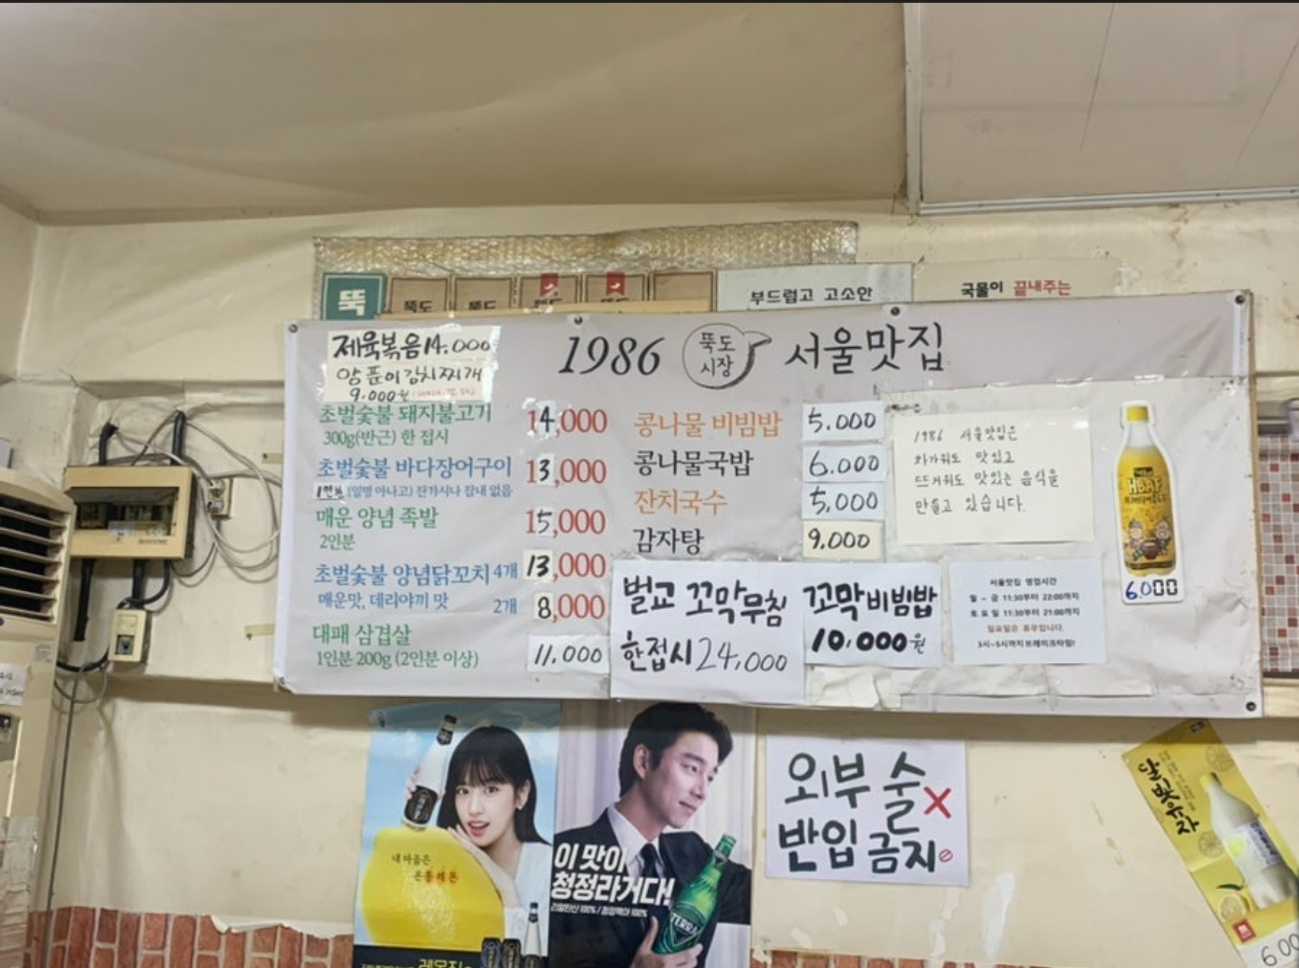 뚝
뚝도
뚝도
부드럽고 고소한
국물이 끝내주는
제육볶음 14.000
양푼이김치찌개
9.000원
1986 뚝도시장 서울맛집
초벌숯불 돼지불고기 14,000
300g(반근) 한 접시
초벌숯불 바다장어구이 13,000
1인분 (일명 아나고) 잔가시나 잡내 없음
매운 양념 족발 15,000
2인분
초벌숯불 양념닭꼬치 4개 13,000
매운맛, 데리야끼 맛 2개 8,000
대패 삼겹살
1인분 200g (2인분 이상) 11.000
콩나물 비빔밥 5.000
콩나물국밥 6.000
잔치국수 5,000
감자탕 9.000
벌교 꼬막무침
한접시 24,000
꼬막비빔밥
10,000원
1986 서울맛집은
차가워도 맛있고
뜨거워도 맛있는 음식을
만들고 있습니다.
서울맛집 영업시간
월 ~ 금 11:30부터 22:00까지
토요일 11:30부터 21:00까지
일요일은 휴무입니다.
3시~5시까지 브레이크타임!
6.000
내 마음은
온통 레몬
이 맛이
청정라거다!
리얼탄산 100% / 청정맥아 100%
TERRA
외부 술 X
반입 금지
달빛유자
6.00